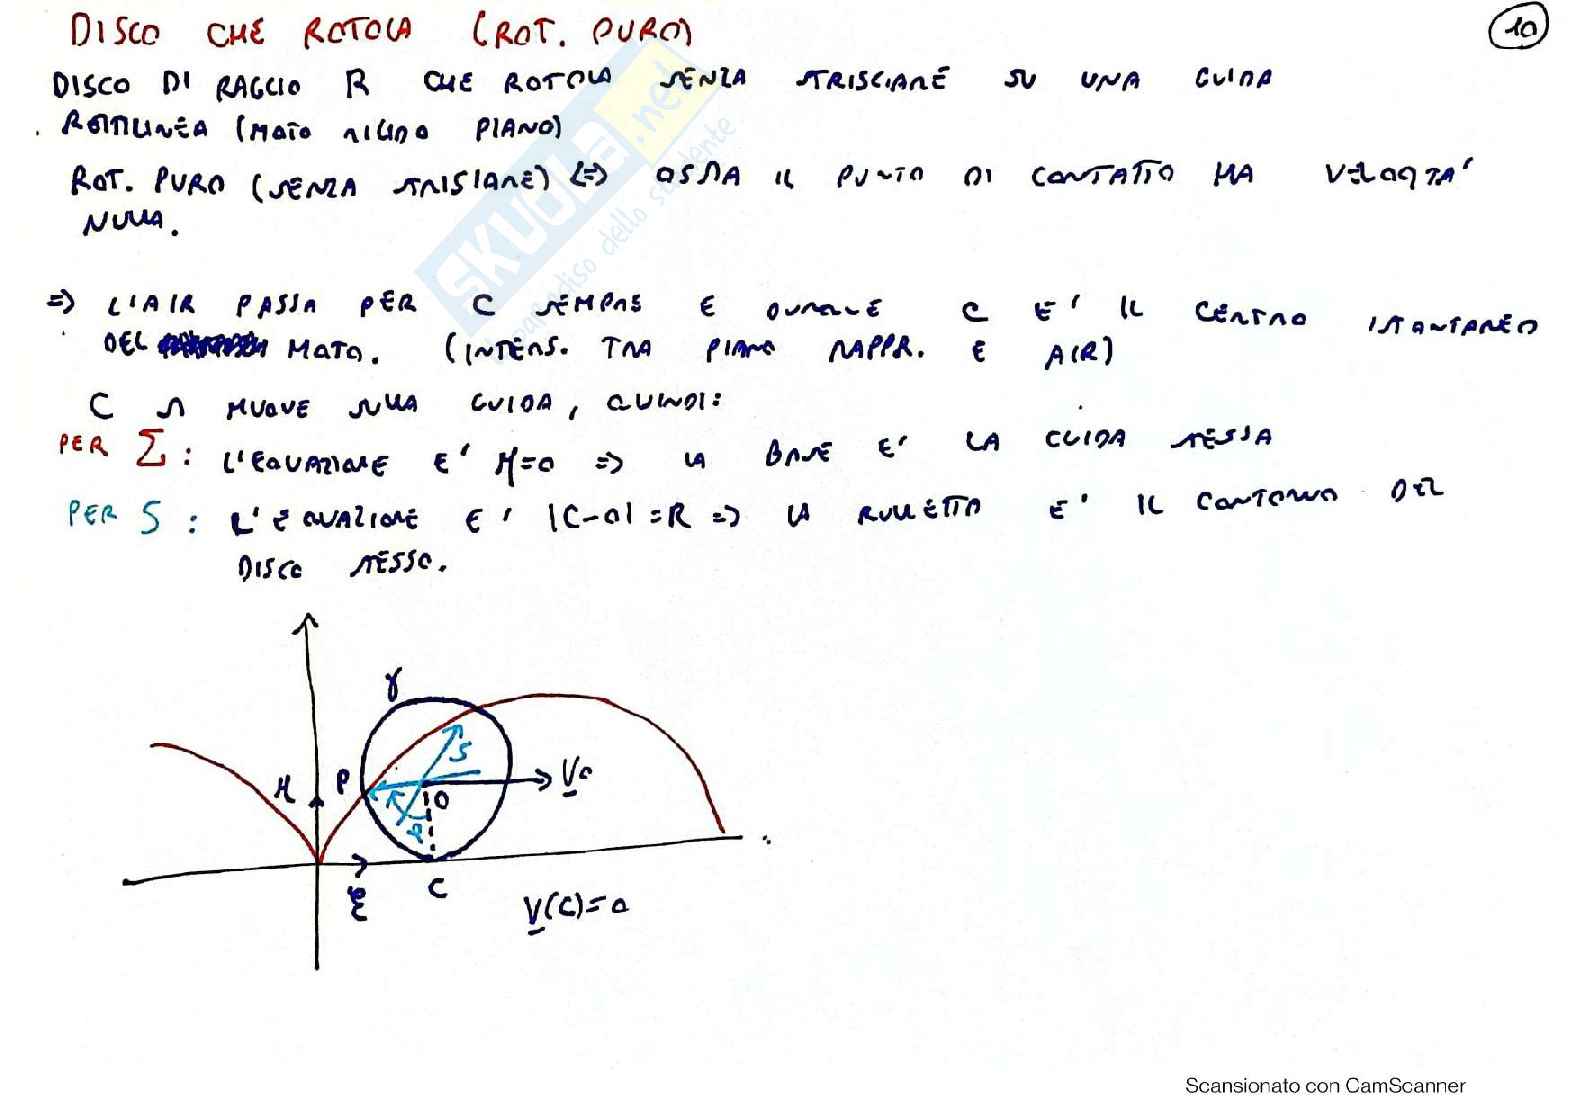 DISCO CHE ROTOLA (ROT. PURO)
10
DISCO DI RAGGIO R CHE ROTOLA SENZA STRISCIARE SU UNA GUIDA
RETTILINEA (MOTO RIGIDO PIANO)
ROT. PURO (SENZA STRISIARE) <=> OSSIA IL PUNTO DI CONTATTO HA VELOCITA'
NULLA.
=> L'AIR PASSA PER C SEMPRE E QUINDI C E' IL CENTRO ISTANTANEO
DEL MOTO. (INTERS. TRA PIANO RAPPR. E AIR)
C SI MUOVE SULLA GUIDA, QUINDI:
PER Σ: L'EQUAZIONE E' η=0 => LA BASE E' LA GUIDA STESSA
PER S: L'EQUAZIONE E' |C-O|=R => LA RULLETTA E' IL CONTORNO DEL
DISCO STESSO.
γ
S
η P O V0
φ
ξ C V(C)=0
SKUOLA.net
paradiso dello studente
Scansionato con CamScanner